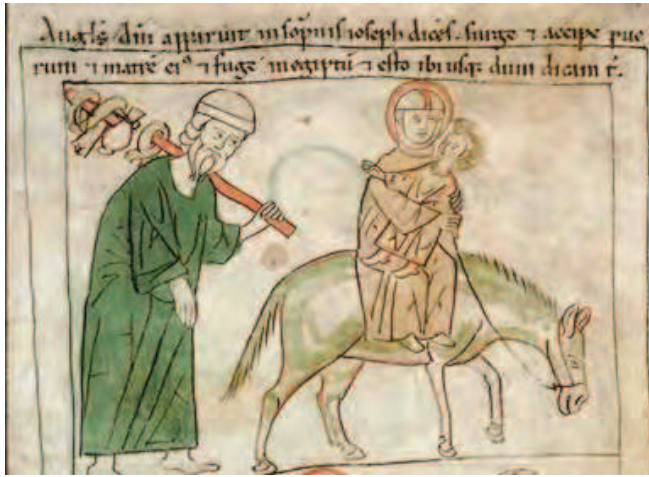 Angl̄s dn̄i apparuit in sōpnis ioseph dicēs. surge ⁊ accipe pue
rum ⁊ matrē eiꝰ ⁊ fuge in egiptū ⁊ esto ibi usqꝫ dum dicam t̄.